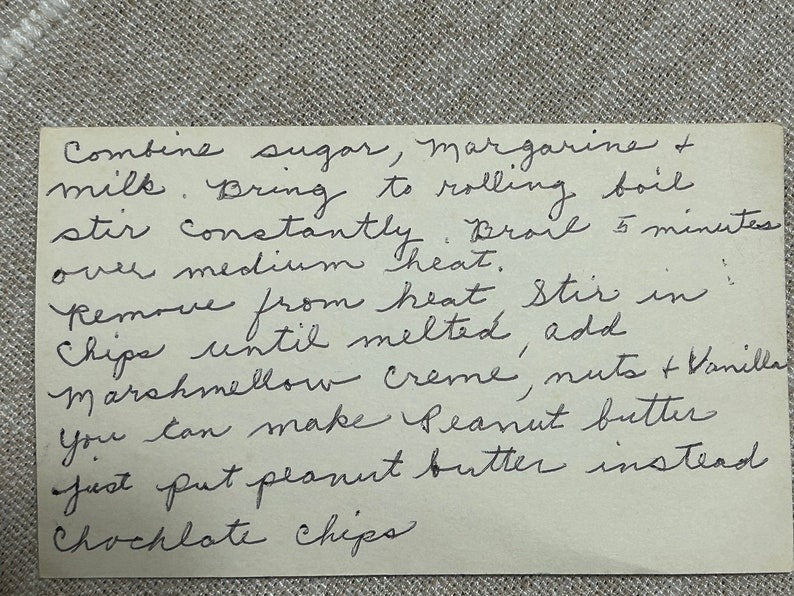 Combine sugar, Margarine +
milk. Bring to rolling boil
stir constantly. Broil 5 minutes
over medium heat.
Remove from heat, Stir in
Chips until melted, add
Marshmellow Creme, nuts + Vanilla
You can make Peanut butter
just put peanut butter instead
Chochlate Chips